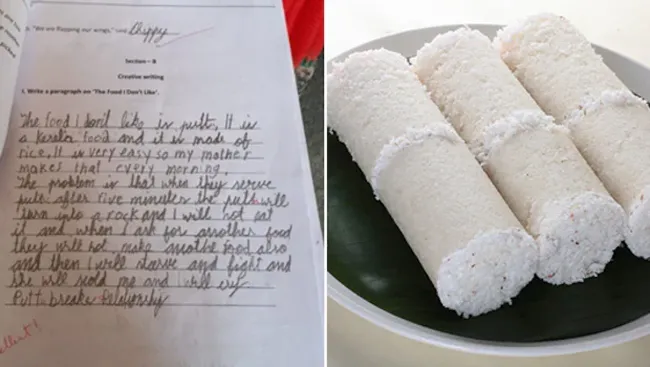 "We are flapping our wings," said Chippy
Section – B
Creative writing
1. Write a paragraph on 'The Food I Don't Like'.
The food I don't like is putt, It is
a Kerala food and it is made of
rice. It is very easy so my mother
makes that every morning.
The problem is that when they serve
putt after five minutes the putt will
turn into a rock and I will not eat
it and when I ask for another food
they will not make anothe food also
and then I will starve and fight and
she will scold me and I will cry
Putt breaks relationship